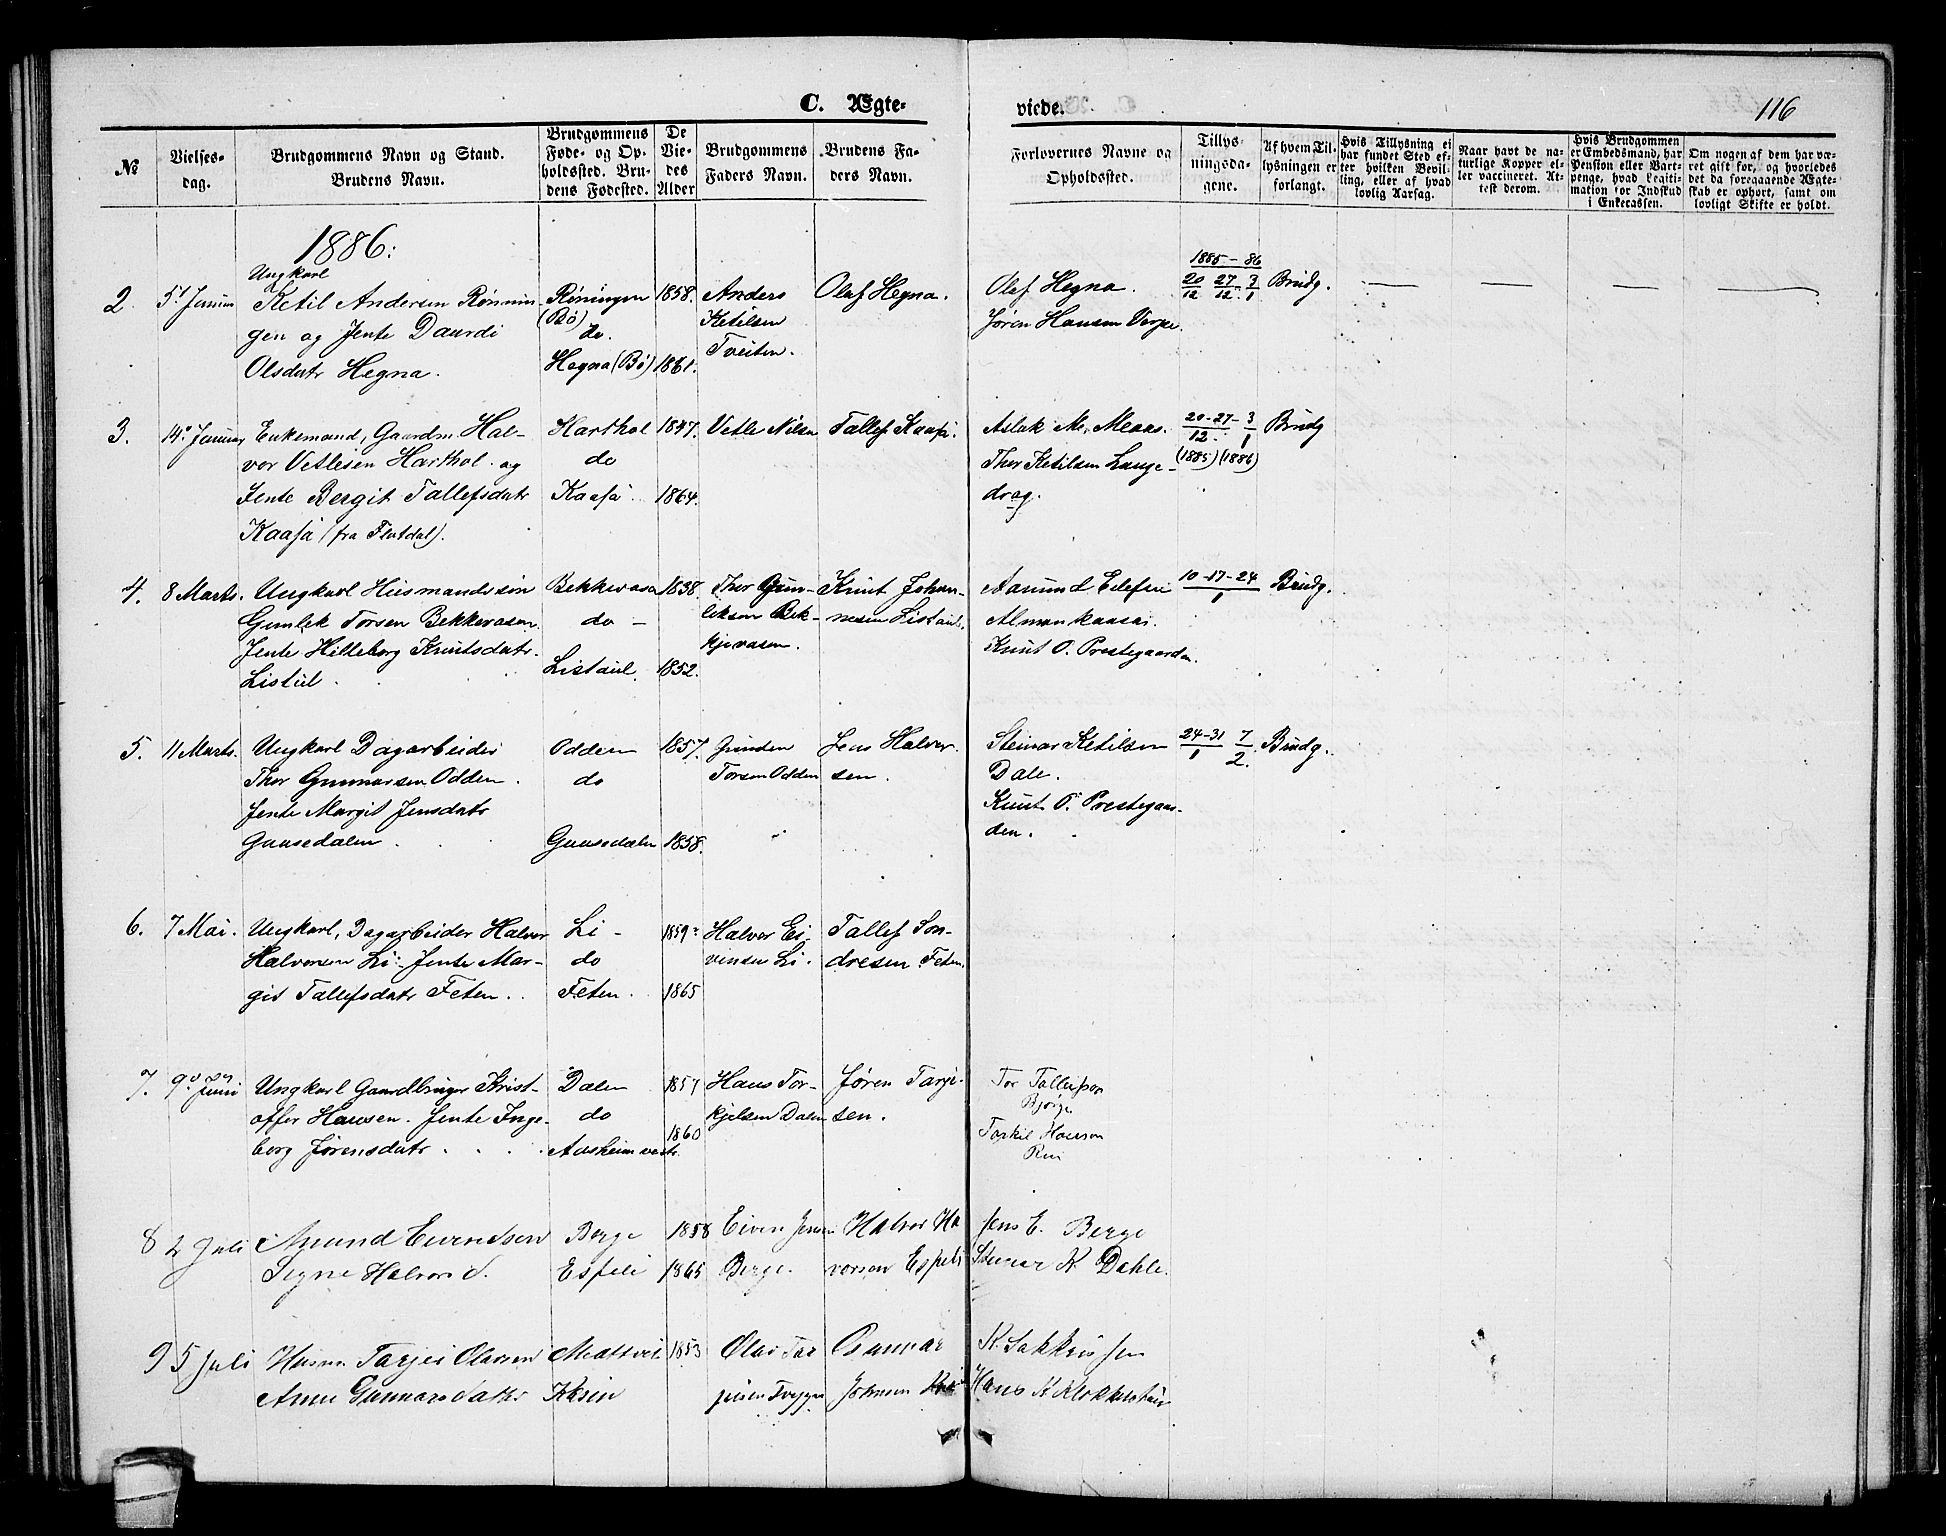 C. Ægte-
viede.
116
№
Vielses-
dag.
Brudgommens Navn og Stand.
Brudens Navn.
Brudgommens
Føde- og Op-
holdssted. Bru-
dens Fødested.
De
Vie-
des
Alder
Brudgommens
Faders Navn.
Brudens Fa-
ders Navn.
Forlovernes Navne og
Opholdssted.
Tillys-
ningsda-
gene.
Af hvem Til-
lysningen er
forlangt.
Hvis Tillysning ei
har fundet Sted ef-
ter hvilken Bevil-
ling, eller af hvad
lovlig Aarsag.
Naar havt de na-
turlige Kopper el-
ler vaccineret. At-
test derom.
Hvis Brudgommen
er Embedsmand, har
Pension eller Vart-
penge, hvad Legiti-
mation for Indskud
i Enkecassen.
Om nogen af dem har væ-
ret gift før, og hvorledes
det da foregaaende Ægte-
skab er ophørt, samt om
lovligt Skifte er holdt.
1886:
2. 5t Januar
Ungkarl
Ketil Andersen Rønnin-
gen og Jente Daardi
Olsdatr Hegna.
Røningen
(Bø)
do.
Hegna (Bø)
1858.
1861.
Anders
Ketilsen
Tveiten.
Olaf Hegna.
Olaf Hegna.
Jøren Hansen Verpe.
1885 - 86
20 27 3
12 12 1
Brudg.
3. 14. Januar
Enkemand, Gaardm. Hal-
vor Vetlesen Harthol og
Jente Bergit Tallefsdatr
Kaasa (fra Flatdal).
Harthol
do
Kaasa
1847.
1864.
Vetle Nilsen
Tallef Kaasa.
Aslak M. Maas.
Thor Ketilsen Lange-
drag.
20-27-3
12. 1
(1885) (1886)
Brudg
4. 8 Marts.
Ungkarl Husmandssøn
Gunlek Torsen Bekkevasen.
Jente Hilleborg Knutsdatr.
Listul.
Bekkevasen
do -
Listaul.
1838.
1852.
Thor Gun-
leksen Bek-
kjevasen.
Knut Johan-
nesen Listaul.
Aamund Eilefsen
Almankaasa.
Knut O. Prestegaarden.
10-17-24
1
Brudg.
5. 11 Marts.
Ungkarl Dagarbeider
Thor Gunnarsen Odden.
Jente Margit Jensdatr
Gaasedalen
Odden
do
Gaasedalen
1857.
1858.
Torsen Odden
Jens Halvor-
sen.
Steinar Ketilsen
Dale.
Knut O. Prestegaar-
den.
24-31 7
1 2.
Brudg.
6. 7 Mai.
Ungkarl, Dagarbeider Halvor
Halvorsen Li. Jente Mar-
git Tallefsdatr Feten.
Li -
do
Feten.
1859
1865
Halvor Ei-
vindsen Li.
Tallef Son-
dresen Feten.
7. 9. Juni
Ungkarl Gaardbruger Krist-
offer Hansen. Jente Inge-
borg Jørensdatr
Dalen
do
Aasheim vestr.
1857
1860
Hans Tor-
kjelsen Dalen
Jøren Tarje-
sen.
Tor Tallefson
Bjørge
Torkil Hanson
Rui
8 2 Juli
Amund Eivendsen
Signe Halvors d.
Berge
Espeli
1858
1865
Eiven Jensen
Berge.
Halvor Ha
vorsen Espeli
Jens E. Berge
Steinar K. Dahle.
9 5 Juli
Husm. Tarjei Olavsen
Anne Gunnarsdatter
1853
Olav Tar
jeisen
Gunnar
Johnsen
Hans K